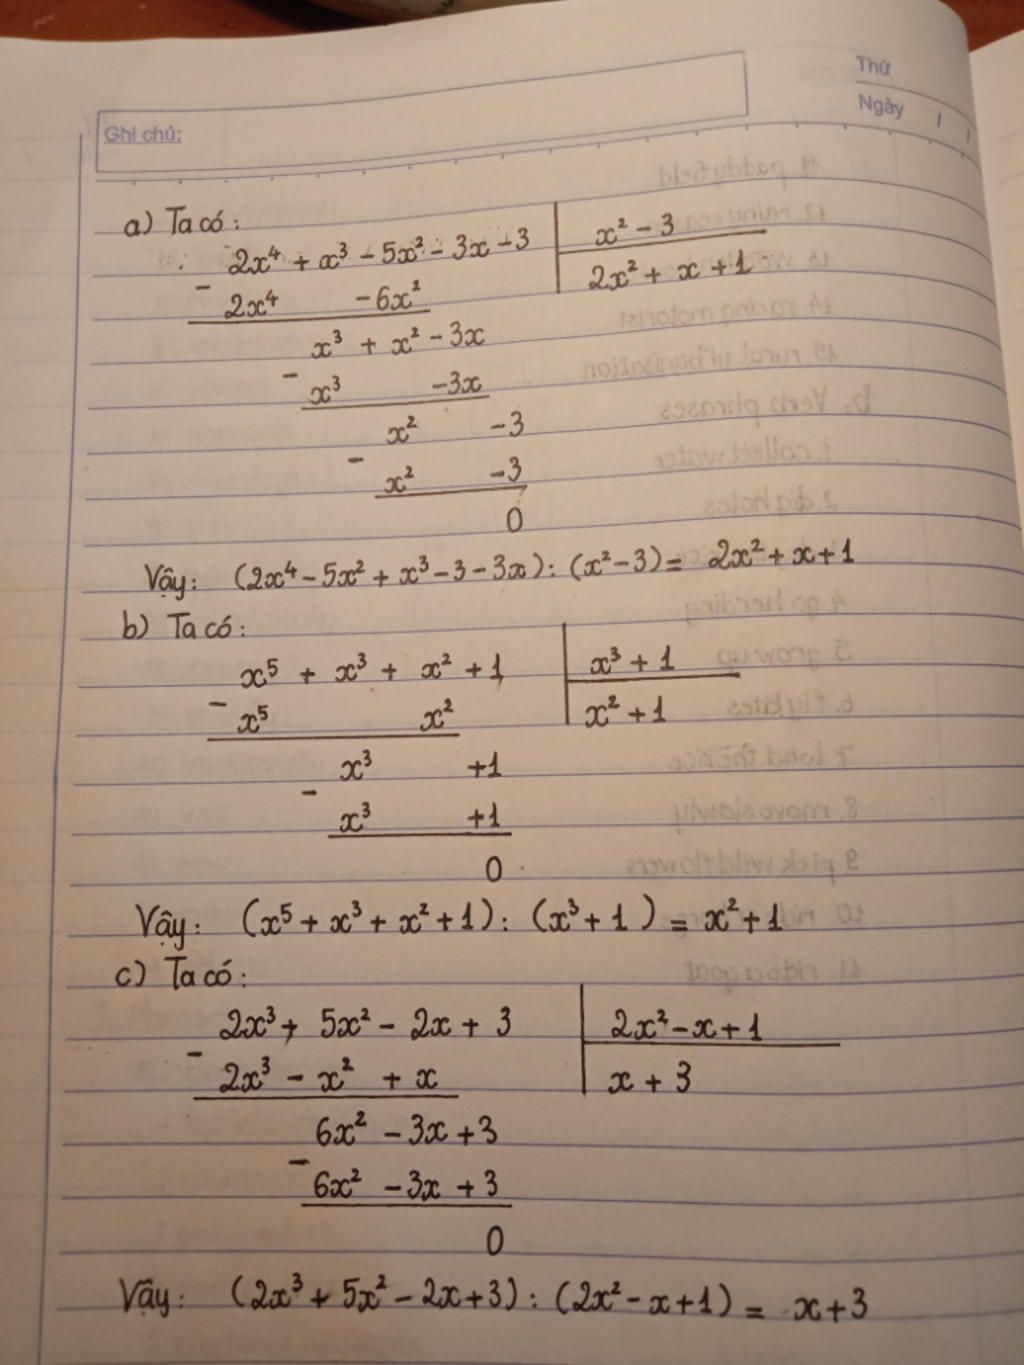 Thứ
Ngày / /
Ghi chú:
a) Ta có:
2x⁴ + x³ - 5x² - 3x - 3 | x² - 3
- 2x⁴ - 6x² | 2x² + x + 1
x³ + x² - 3x
- x³ - 3x
x² - 3
- x² - 3
0
Vậy: (2x⁴ - 5x² + x³ - 3 - 3x) : (x² - 3) = 2x² + x + 1
b) Ta có:
x⁵ + x³ + x² + 1 | x³ + 1
- x⁵ x² | x² + 1
x³ + 1
- x³ + 1
0
Vậy: (x⁵ + x³ + x² + 1) : (x³ + 1) = x² + 1
c) Ta có:
2x³ + 5x² - 2x + 3 | 2x² - x + 1
- 2x³ - x² + x | x + 3
6x² - 3x + 3
- 6x² - 3x + 3
0
Vậy: (2x³ + 5x² - 2x + 3) : (2x² - x + 1) = x + 3